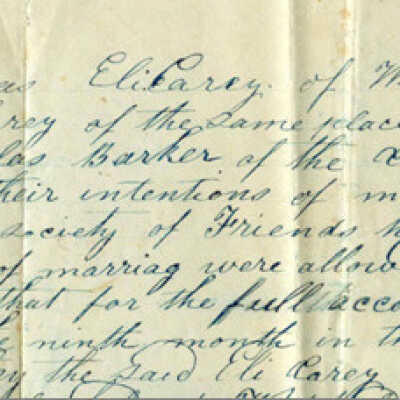 as Eli Carey of
rey of the same place
las Barker of the
heir intentions of m
society of Friends h
of marriag were allow
that for the full acco
ninth month in th
ey the said Eli Carey